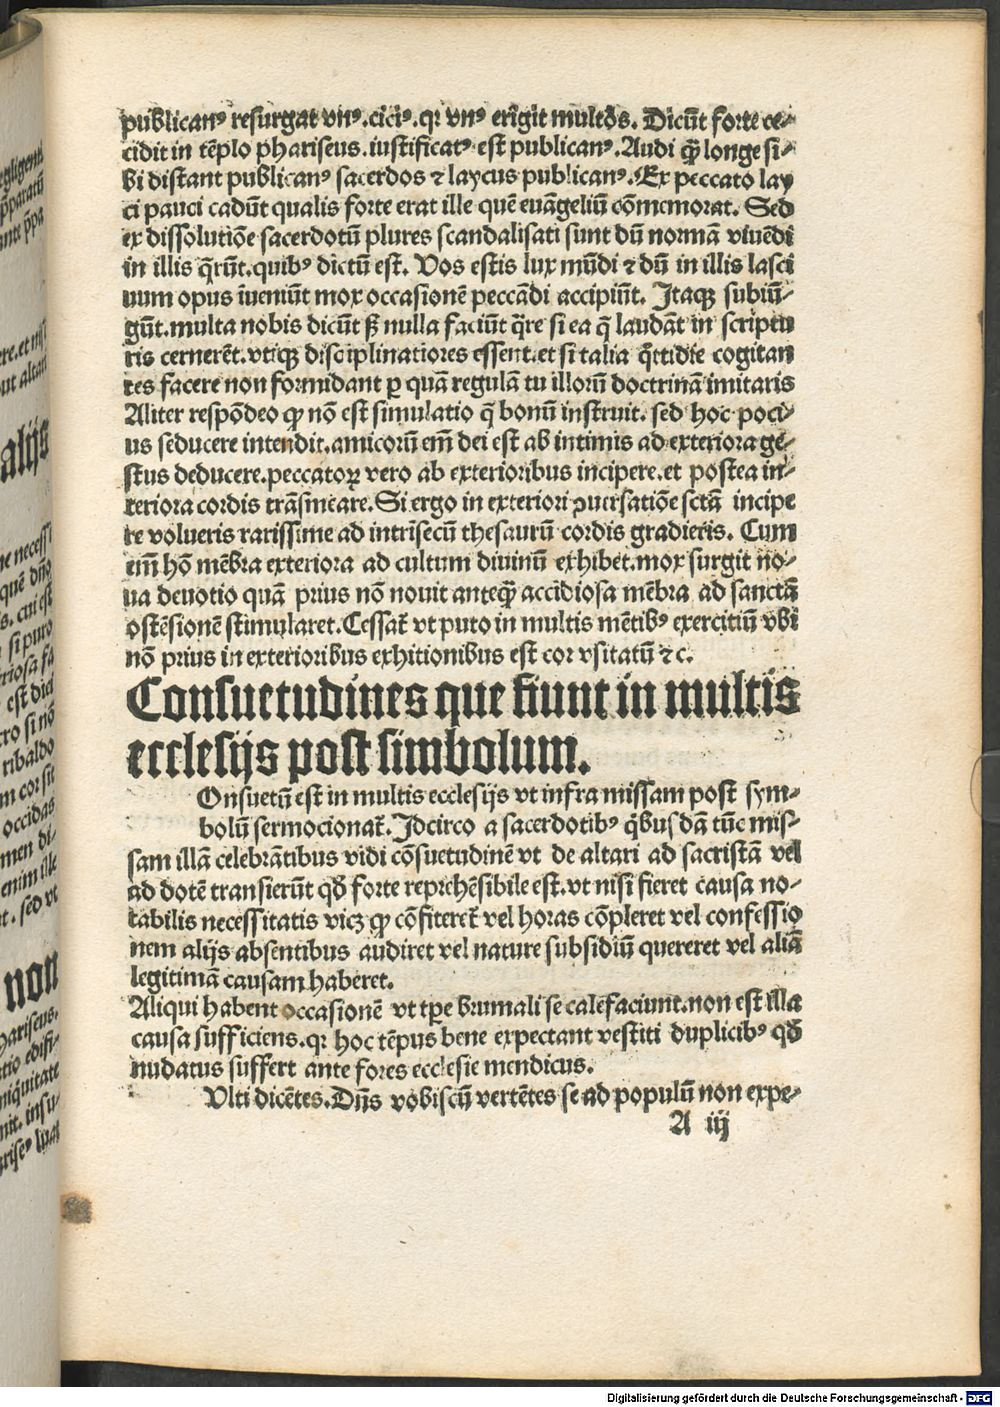 publicanꝰ resurgat vnꝰ.ciciꝰ.qꝛ vnꝰ erigit multos. Dicūt forte ce⸗
cidit in tēplo phariseus.iustificatꝰ est publicanꝰ.Audi qꝫ longe si⸗
bi distant publicanꝰ sacerdos ⁊ laycus publicanꝰ. Ex peccato lay
ci pauci cadūt qualis forte erat ille quē euāgeliū cōmemorat. Sed
ex dissolutiōe sacerdotū plures scandalisati sunt dū normā viuēdi
in illis q̄rūt.quibꝰ dictū est. Vos estis lux mūdi ⁊ dū in illis lasci
uum opus īueniūt mox occasionē peccādi accipiūt. Itaqꝫ subiū⸗
gūt.multa nobis dicūt ꝫ nulla faciūt q̄re si ea q̄ laudāt in scriptu
ris cernerēt.vtiqꝫ disciplinatiores essent.et si talia q̄ttidie cogitan
tes facere non formidant ꝑ quā regulā tu illorū doctrinā imitaris
Aliter respōdeo ꝙ nō est simulatio q̄ bonū instruit. sed hoc poci⸗
us seducere intendit.amicorū em̄ dei est ab intimis ad exteriora ge⸗
stus deducere.peccatoꝝ vero ab exterioribus incipere.et postea in⸗
teriora cordis trāsmeare.Si ergo in exteriori ꝯuersatiōe sctā incipe
re volueris rarissime ad intrīsecū thesaurū cordis gradieris. Cum
em̄ hō mēbra exteriora ad cultum diuinū exhibet.mox surgit no⸗
ua deuotio quā prius nō nouit anteqꝫ accidiosa mēbra ad sanctā
ostēsionē stimularet.Cessat̄ vt puto in multis mētibꝰ exercitiū vbi
nō prius in exterioribus exhitionibus est cor vsitatū ⁊ c.
Consuetudines que fiunt in multis
ecclesijs post simbolum.
Onsuetū est in multis ecclesijs vt infra missam post sym⸗
bolū sermocionat̄. Idcirco a sacerdotibꝰ q̄busdā tūc mis⸗
sam illā celebrātibus vidi cōsuetudinē vt de altari ad sacristā vel
ad dotē transierūt qd̄ forte reprehēsibile est.vt nisi fieret causa no⸗
tabilis necessitatis vicꝫ ꝙ cōfiteret̄ vel horas cōpleret vel confessio
nem alijs absentibus audiret vel nature subsidiū quereret vel aliā
legitimā causam haberet.
Aliqui habent occasionē vt tp̄e brumali se calefaciunt.non est illa
causa sufficiens.qꝛ hoc tēpus bene expectant vestiti duplicibꝰ qd̄
nudatus suffert ante fores ecclesie mendicus.
Vlti dicētes.Dn̄s vobiscū vertētes se ad populū non expe⸗
A iij
egligenti
p̄paratū
ere.et nisi
aut altari
alijs
ne necessi
quē dn̄o
s. cui est
si puro
riosa fa
est dici
ro si nō
ribaldo
m cor sit
occidas
men di⸗
enim ille
t. sed vt
non
hariseus.
tio edifi⸗
niq̄uitate
nit. insu⸗
Digitalisierung gefördert durch die Deutsche Forschungsgemeinschaft - DFG